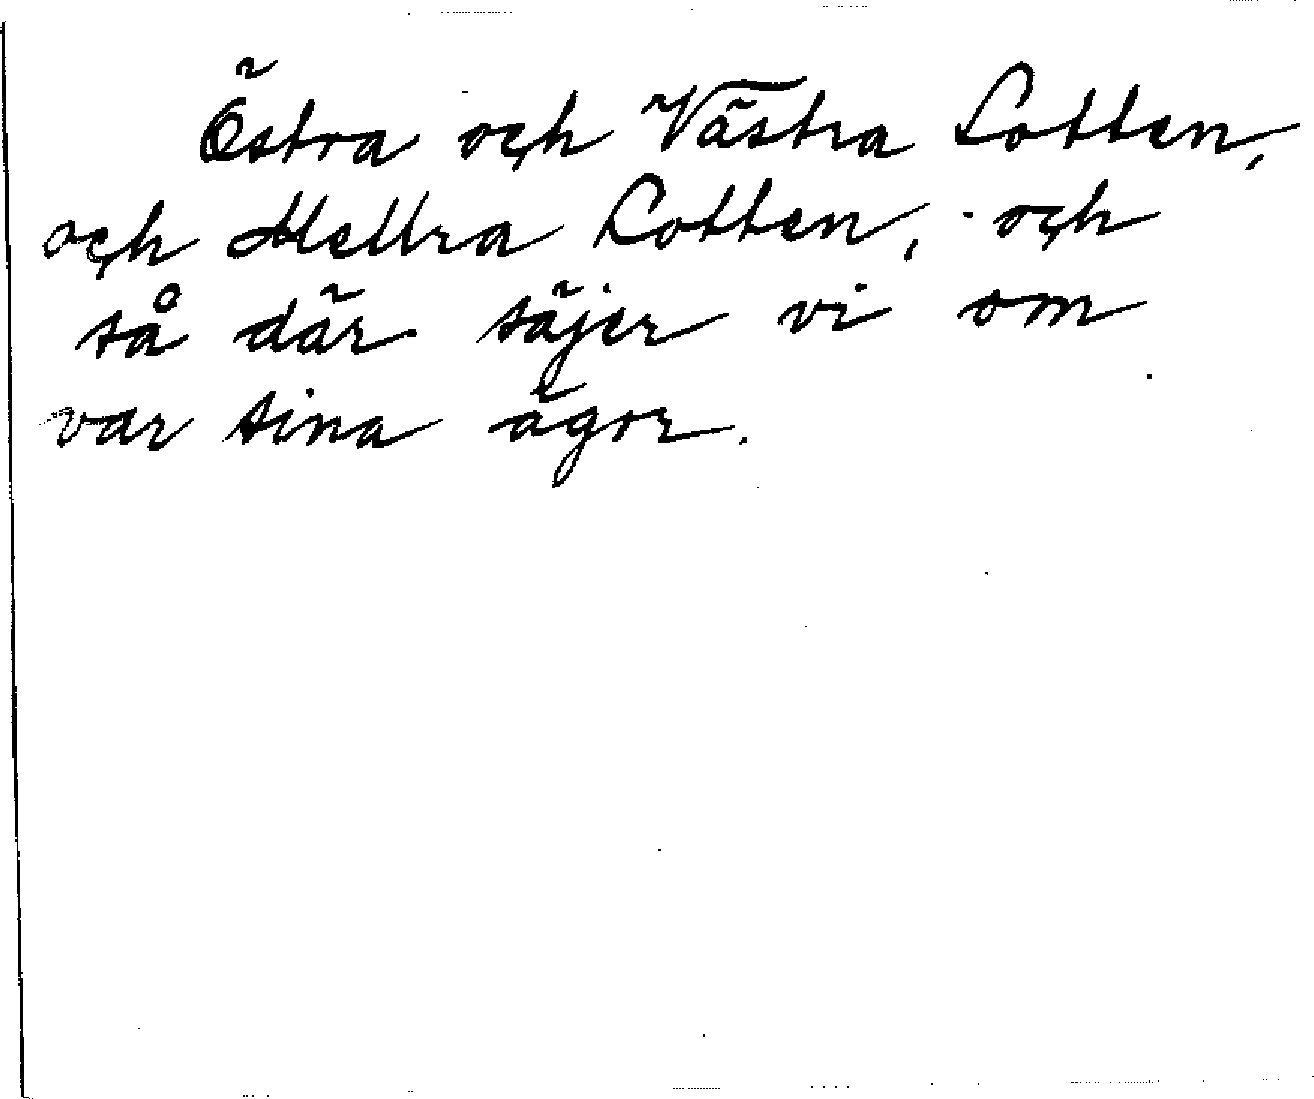 Östra och Västra Lotten,
och Mellra Lotten, och
så där säjer vi om
var sina ägor.